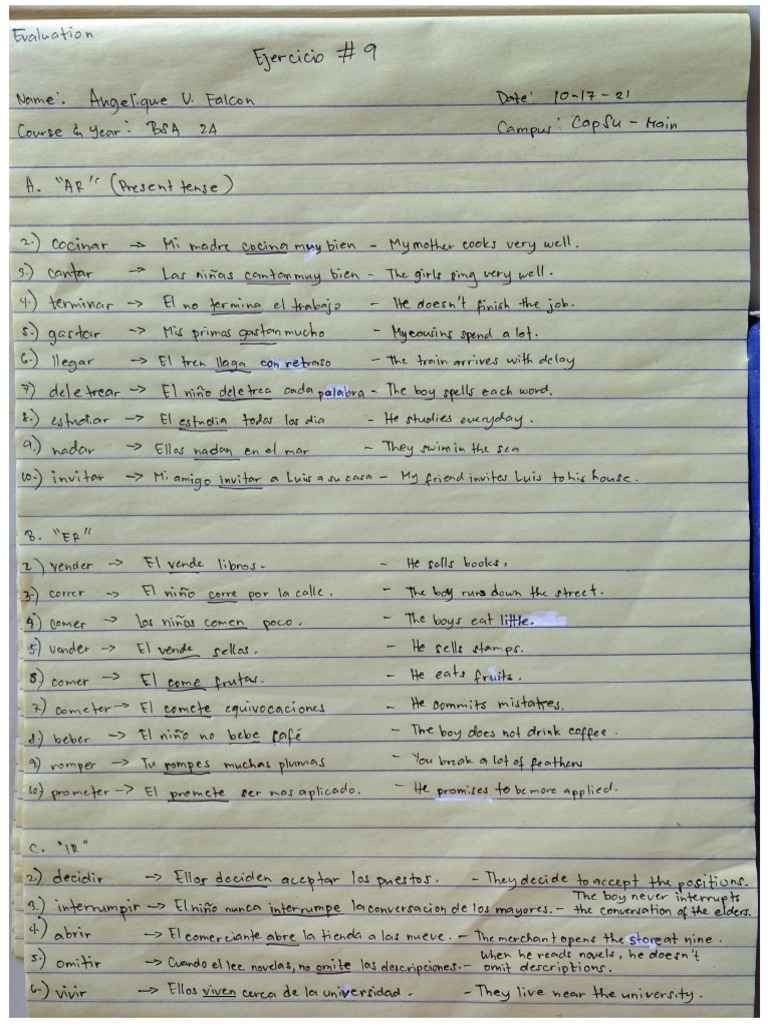 Evaluation
Ejercicio # 9
Name: Angelique V. Falcon Date: 10-17-21
Course & Year: BSA 2A Campus: CapSu - Main
A. "AR" (Present tense)
2.) cocinar → Mi madre cocina muy bien - My mother cooks very well.
3.) cantar → Las niñas cantan muy bien - The girls sing very well.
4.) terminar → El no termina el trabajo - He doesn't finish the job.
5.) gastar → Mis primas gastan mucho - My cousins spend a lot.
6.) llegar → El tren llaga con retraso - The train arrives with delay
7) deletrear → El niño deletrea cada palabra - The boy spells each word.
8.) estudiar → El estudia todas los dia - He studies everyday.
9.) nadar → Ellos nadan en el mar - They swim in the sea
10.) invitar → Mi amigo invitar a Luis a su casa - My friend invites Luis to his house.
B. "ER"
2) vender → El vende libros. - He sells books.
3.) correr → El niño corre por la calle. - The boy runs down the street.
4) comer → Los niños comen poco. - The boys eat little.
5) vender → El vende sellos. - He sells stamps.
6) comer → El come frutas. - He eats fruits.
7.) cometer → El comete equivocaciones - He commits mistakes.
8.) beber → El niño no bebe café - The boy does not drink coffee.
9) romper → Tu rompes muchas plumas - You break a lot of feathers
10) prometer → El promete ser mas aplicado. - He promises to be more applied.
C. "IR"
2.) decidir → Ellos deciden aceptar los puestos. - They decide to accept the positions.
3.) interrumpir → El niño nunca interrumpe la conversacion de los mayores. - The boy never interrupts the conversation of the elders.
4.) abrir → El comerciante abre la tienda a las nueve. - The merchant opens the store at nine.
5.) omitir → Cuando el lee novelas, no omite las descripciones. - when he reads novels, he doesn't omit descriptions.
6.) vivir → Ellos viven cerca de la universidad. - They live near the university.